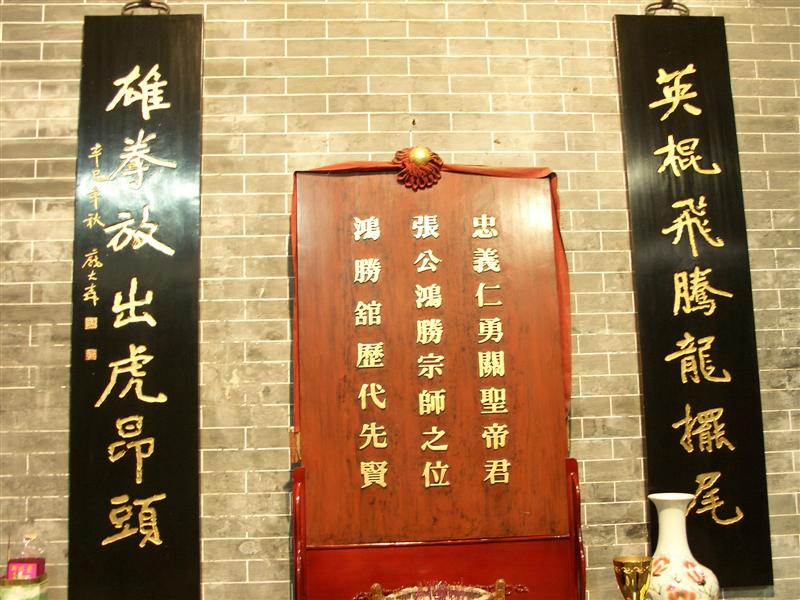 英棍飛騰龍擺尾
忠義仁勇關聖帝君
張公鴻勝宗師之位
鴻勝舘歷代先賢
雄拳放出虎昂頭
辛巳年秋